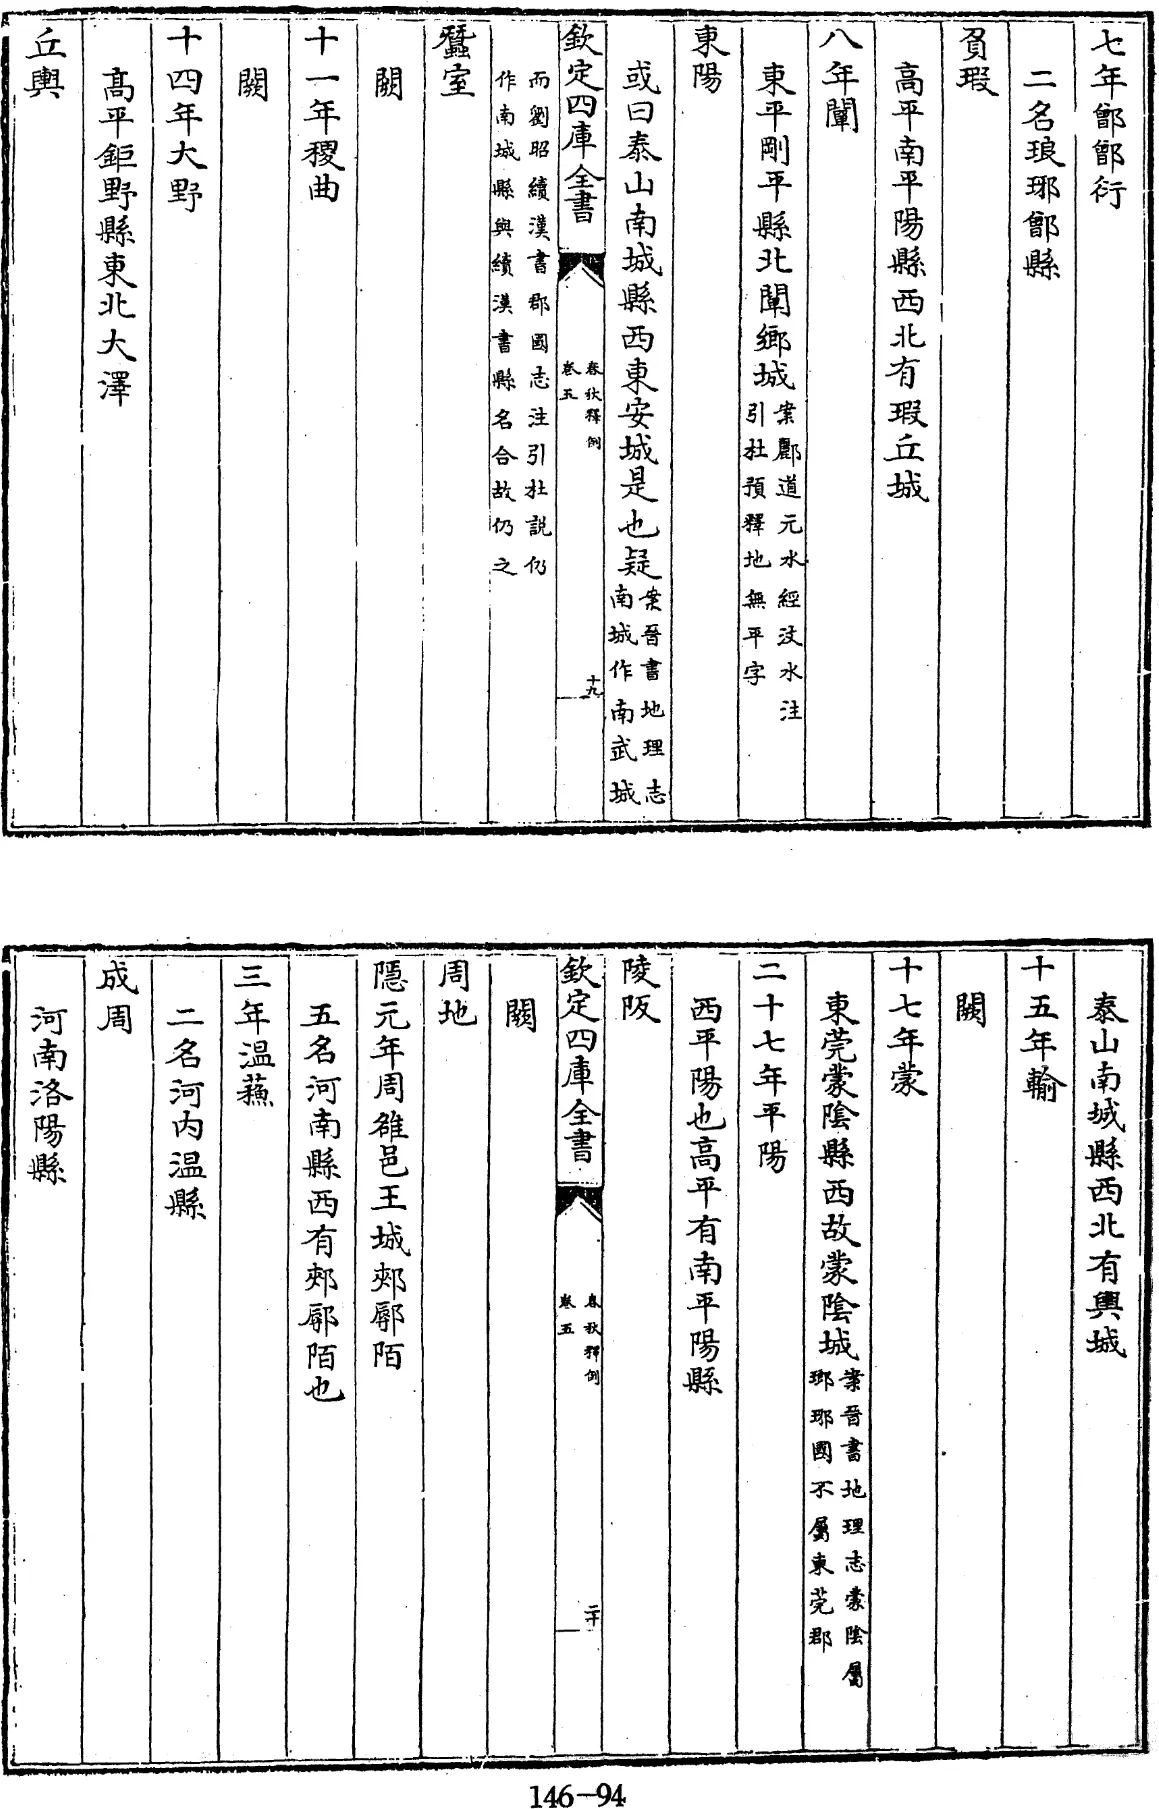 七年鄫鄫衍
二名琅琊鄫縣
負瑕
高平南平陽縣西北有瑕丘城
八年闡
東平剛平縣北闡鄉城案酈道元水經汶水注
引杜預釋地無平字
東陽
或曰泰山南城縣西東安城是也疑案晉書地理志
南城作南武城
欽定四庫全書
春秋釋例
卷五
十九
而劉昭續漢書郡國志注引杜說仍
作南城縣與續漢書縣名合故仍之
蠶室
闕
十一年稷曲
闕
十四年大野
高平鉅野縣東北大澤
丘輿
泰山南城縣西北有輿城
十五年輸
闕
十七年蒙
東莞蒙陰縣西故蒙陰城案晉書地理志蒙陰屬
瑯琊國不屬東莞郡
二十七年平陽
西平陽也高平有南平陽縣
陵阪
欽定四庫全書
春秋釋例
卷五
二十
闕
周地
隱元年周雒邑王城郟鄏陌
五名河南縣西有郟鄏陌也
三年溫蘓
二名河內溫縣
成周
河南洛陽縣
146-94